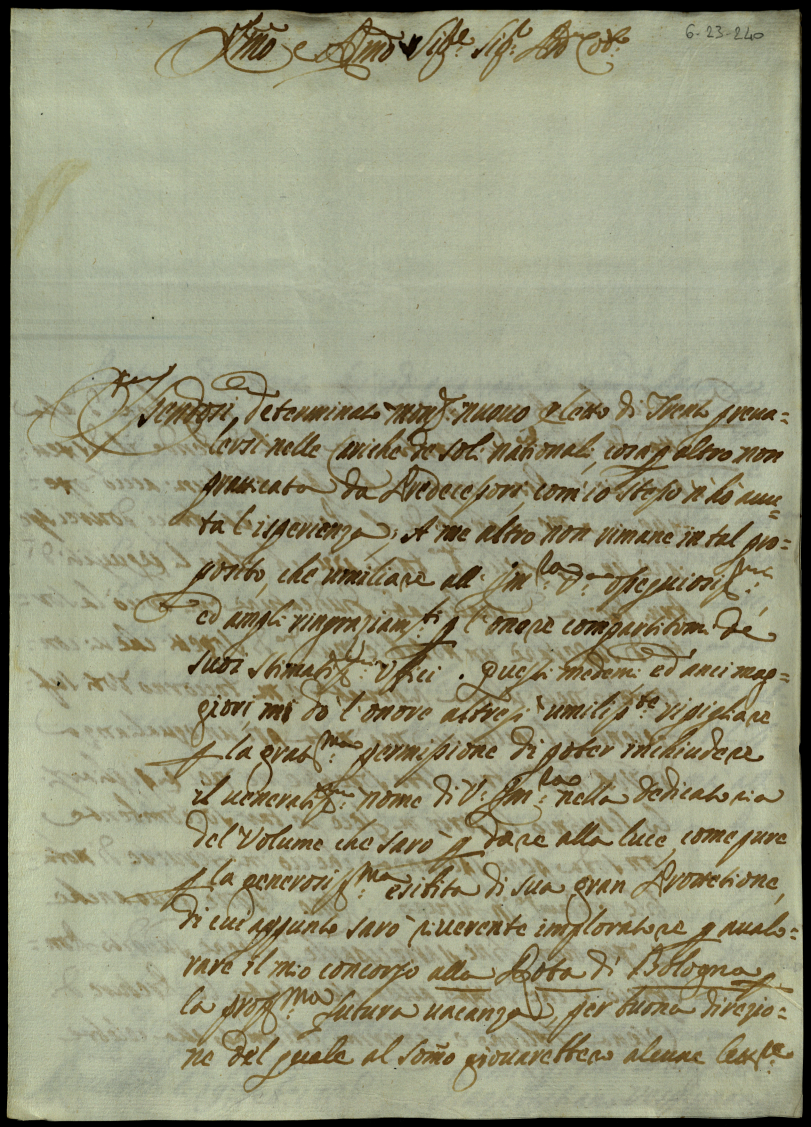 6-23-240
Em͂o e Rm͂o Sig.re Sig.r P͂ron Col.mo
Essendosi determinato Mons.r nuovo eletto di Trento preua=
lersi nelle cariche de soli nationali, cosa p altro non
pratticata da Predecessori, com'io stesso n'hò auu=
ta l'isperienza; A me altro non rimane in tal pro=
posito, che umiliare all' Em.za V.ra ossequiosiss.mi
ed ampli ringraziam.ti p l'onore compartitomi de
suoi stimatiss.mi Uffici. Questi medemi ed anci mag=
giori, mi dò l'onore altresì umiliss.te ripigliare
p la grat.ma permissione di poter inchiudere
il veneratiss.mo nome di V: Em.za nella dedicatoria
del Volume che sarò p dare alla luce, come pure
p la generosiss.ma esibita di sua gran Protetione,
di cui appunto sarò riuerente imploratore p aualo=
rare il mio concorso alla Rota di Bologna p
la pross.ma futura uacanza, per buona direzio=
ne del quale al som͂o giouarebbero alcune